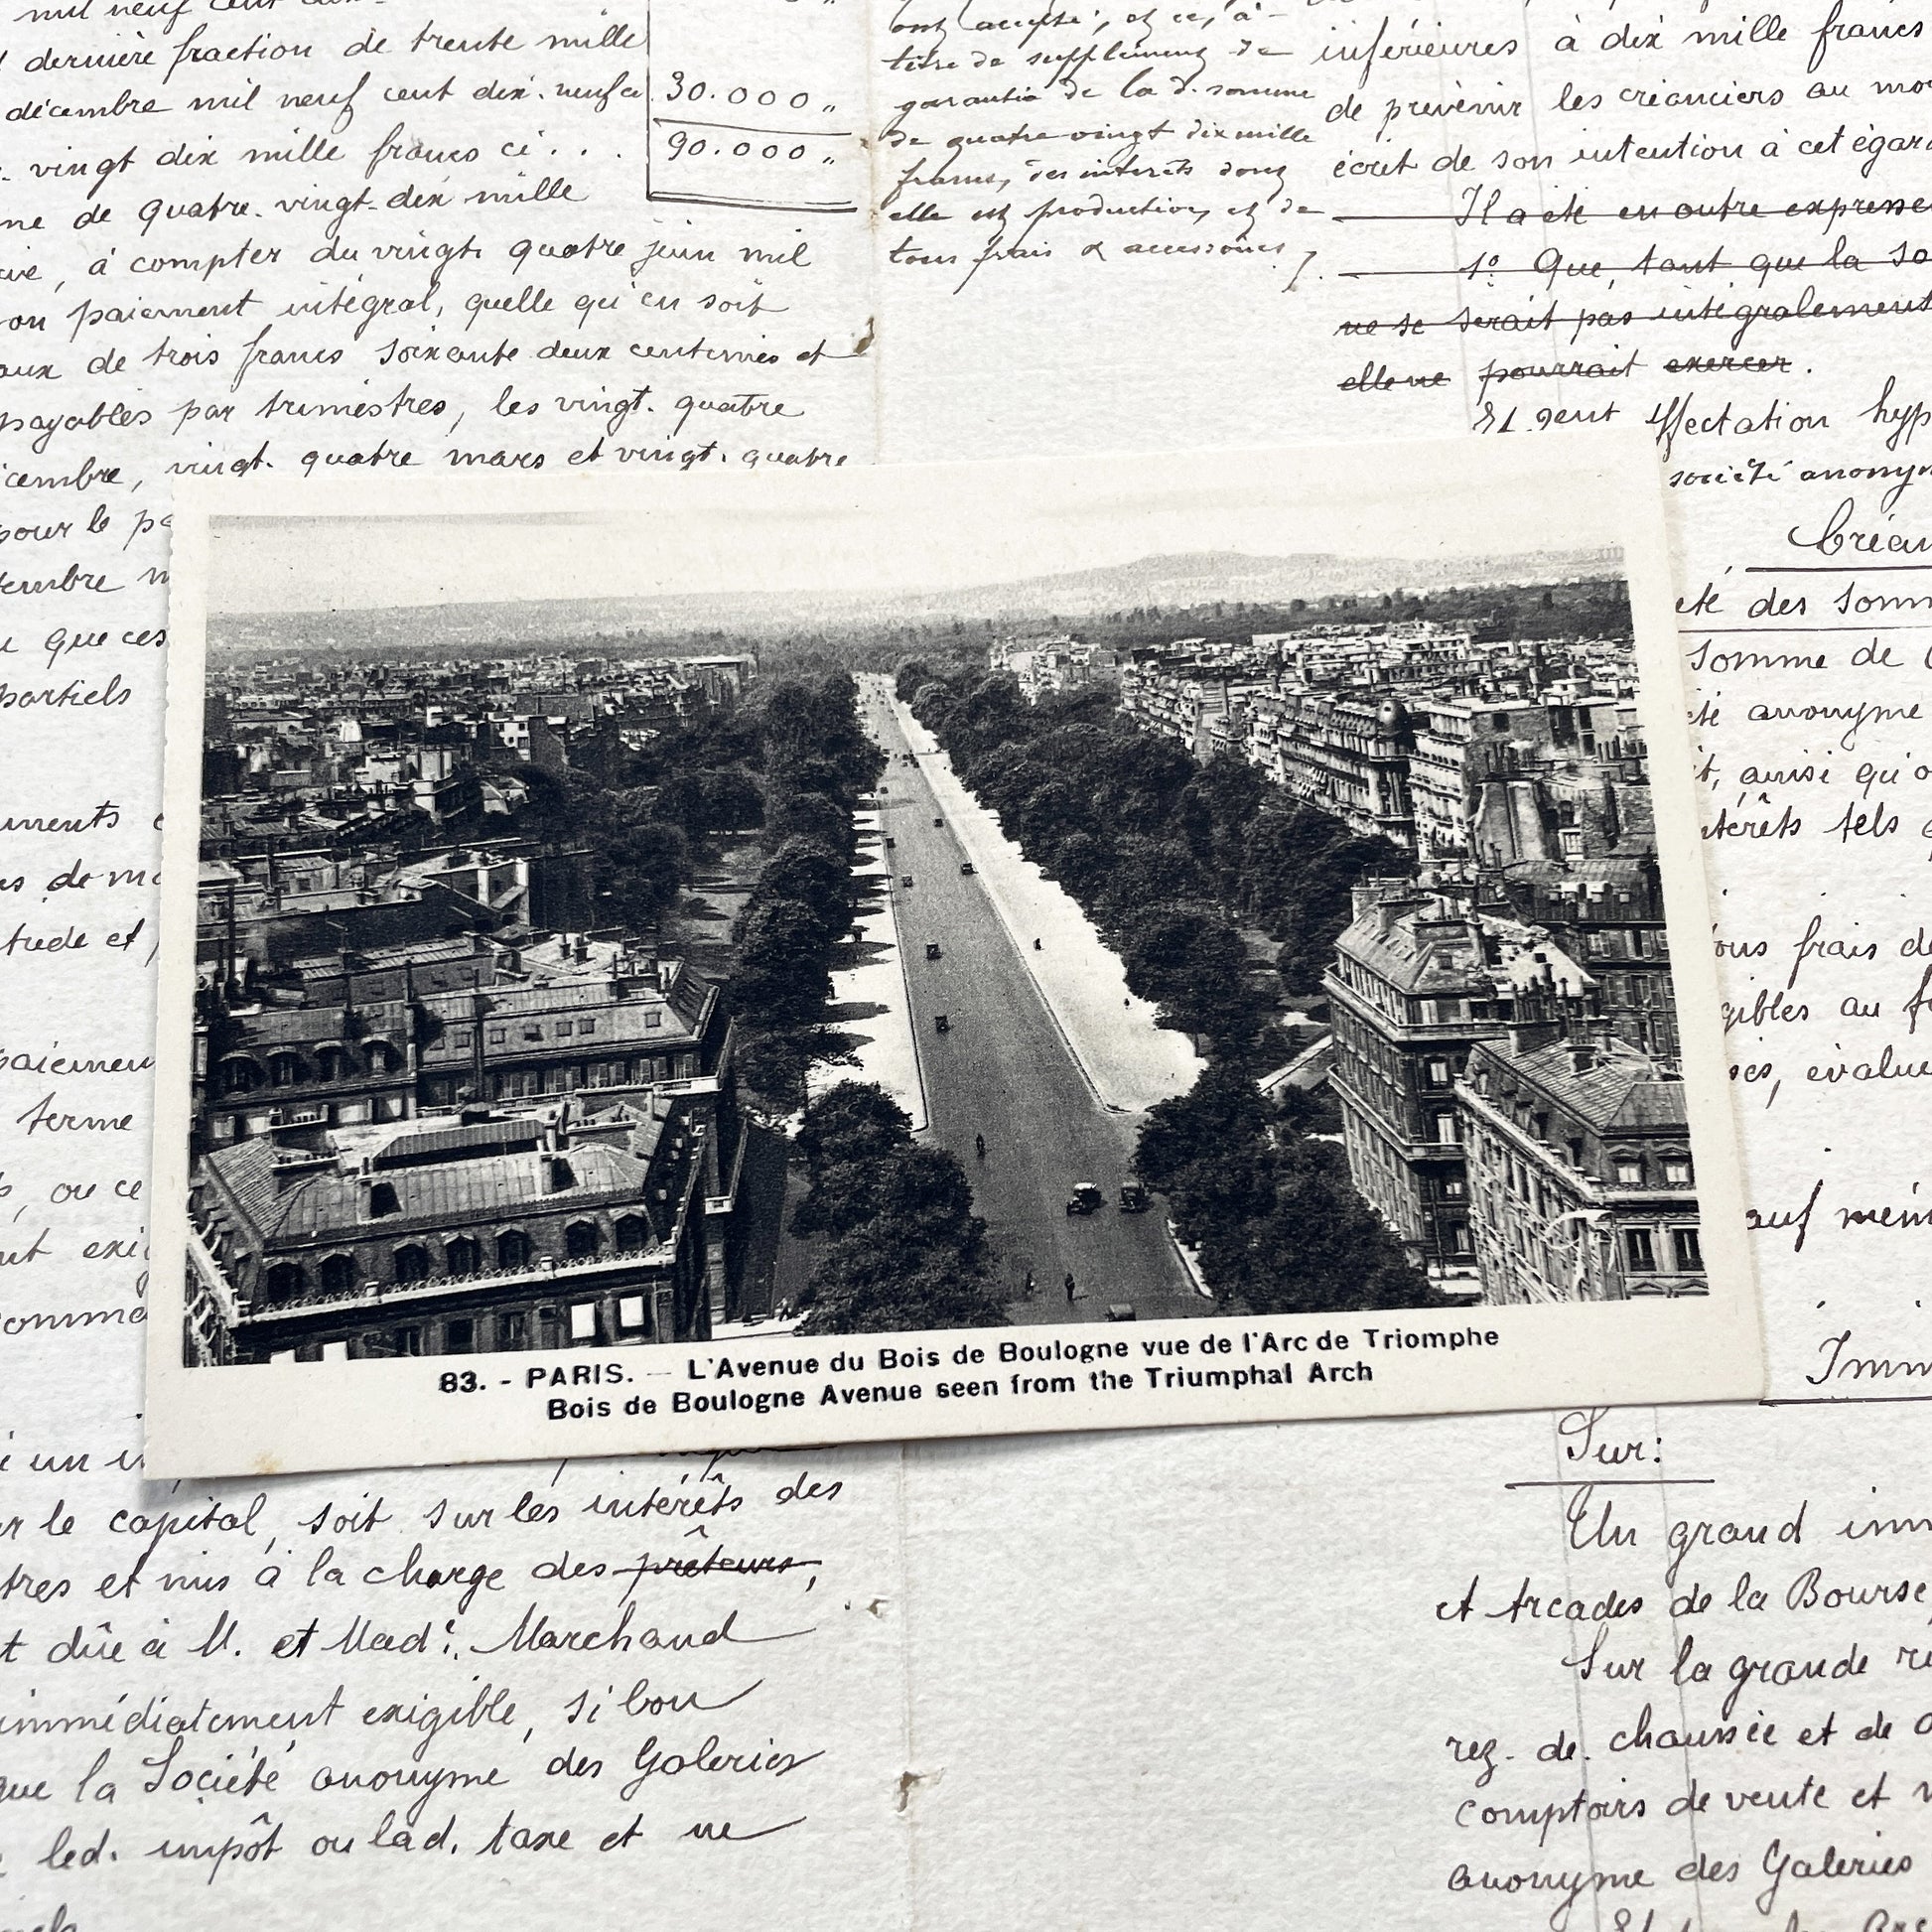 mil neuf cent dix-
dernière fraction de trente mille
décembre mil neuf cent dix. neuf ci 30.000 „
vingt dix mille francs ci . . . 90.000 „
me de quatre. vingt. dix mille
à compter du vingt. quatre juin mil
on paiement intégral, quelle qu'en soit
aux de trois francs soixante deux centimes et
payables par trimestres, les vingt. quatre
cembre, vingt. quatre mars et vingt. quatre
pour le pa
tembre m
que ces
partiels
uments
es de mo
tude et
paiemen
terme
, ou ce
nt exi
comma
ont accepté, et ce, à
titre de supplément de
garantie de la d. somme
de quatre vingt dix mille
francs, des intérêts dont
elle est production, et de
tous frais & accessoires
inférieures à dix mille francs
de prévenir les créanciers au mo
écrit de son intention à cet égard
Il a été en outre expresse
1° Que, tant que la so
ne se serait pas intégralement
elle ne pourrait exercer.
ffectation hyp
société anonym
Créan
été des somm
somme de
té anonyme
t, ainsi qu'o
ntérêts tels
ous frais de
gibles au f
ses, évalue
auf mém
Imm
83. - PARIS. — L'Avenue du Bois de Boulogne vue de l'Arc de Triomphe
Bois de Boulogne Avenue seen from the Triumphal Arch
i un i
r le capital, soit sur les intérêts des
tres et mis à la charge des prêteurs,
t dûe à M. et Mad. Marchand
immédiatement exigible, si bon
que la Société anonyme des Galeries
led. impôt ou lad. taxe et ne
Sur:
Un grand imm
et Arcades de la Bourse
Sur la grande
rez. de. chaussée et de
comptoirs de vente et
anonyme des Galeries